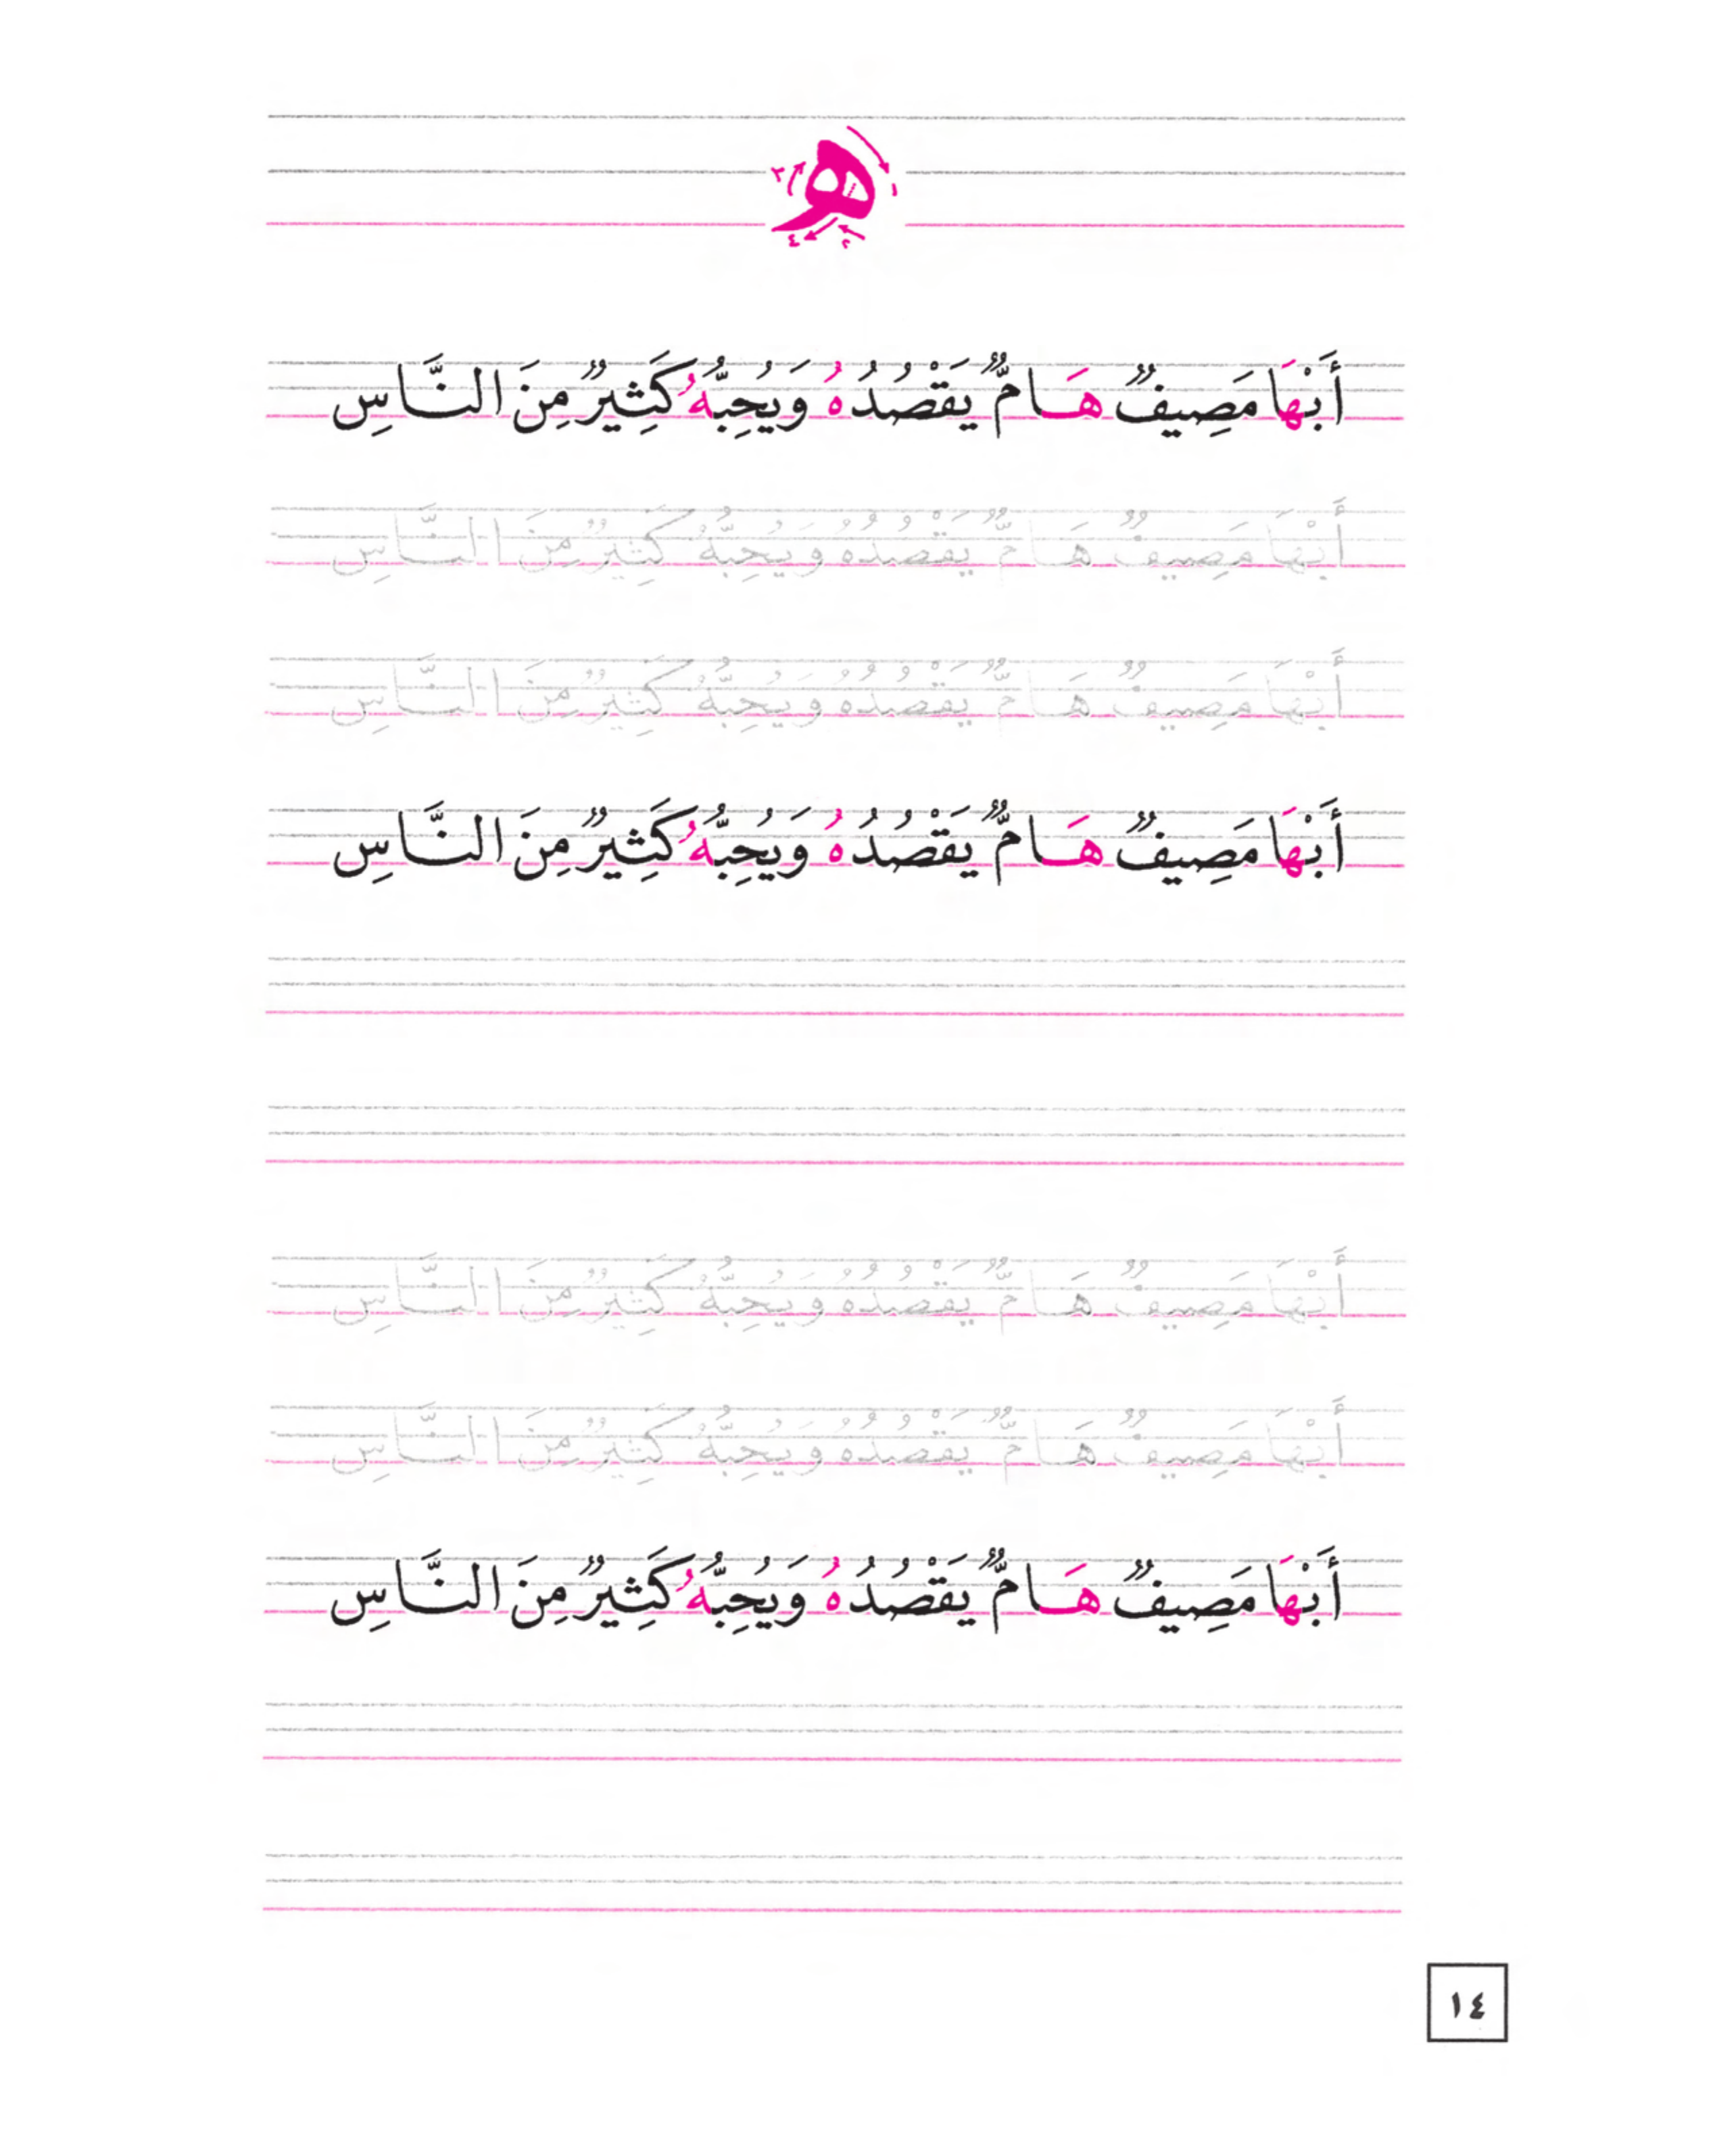 هـ
١
٢
٣
٤
أَبْهَا مَصِيفٌ هَـامٌّ يَقْصُدُهُ وَيُحِبُّهُ كَثِيرٌ مِنَ النَّـاسِ
أَبْهَا مَصِيفٌ هَـامٌّ يَقْصُدُهُ وَيُحِبُّهُ كَثِيرٌ مِنَ النَّـاسِ
أَبْهَا مَصِيفٌ هَـامٌّ يَقْصُدُهُ وَيُحِبُّهُ كَثِيرٌ مِنَ النَّـاسِ
أَبْهَا مَصِيفٌ هَـامٌّ يَقْصُدُهُ وَيُحِبُّهُ كَثِيرٌ مِنَ النَّـاسِ
أَبْهَا مَصِيفٌ هَـامٌّ يَقْصُدُهُ وَيُحِبُّهُ كَثِيرٌ مِنَ النَّـاسِ
أَبْهَا مَصِيفٌ هَـامٌّ يَقْصُدُهُ وَيُحِبُّهُ كَثِيرٌ مِنَ النَّـاسِ
أَبْهَا مَصِيفٌ هَـامٌّ يَقْصُدُهُ وَيُحِبُّهُ كَثِيرٌ مِنَ النَّـاسِ
١٤